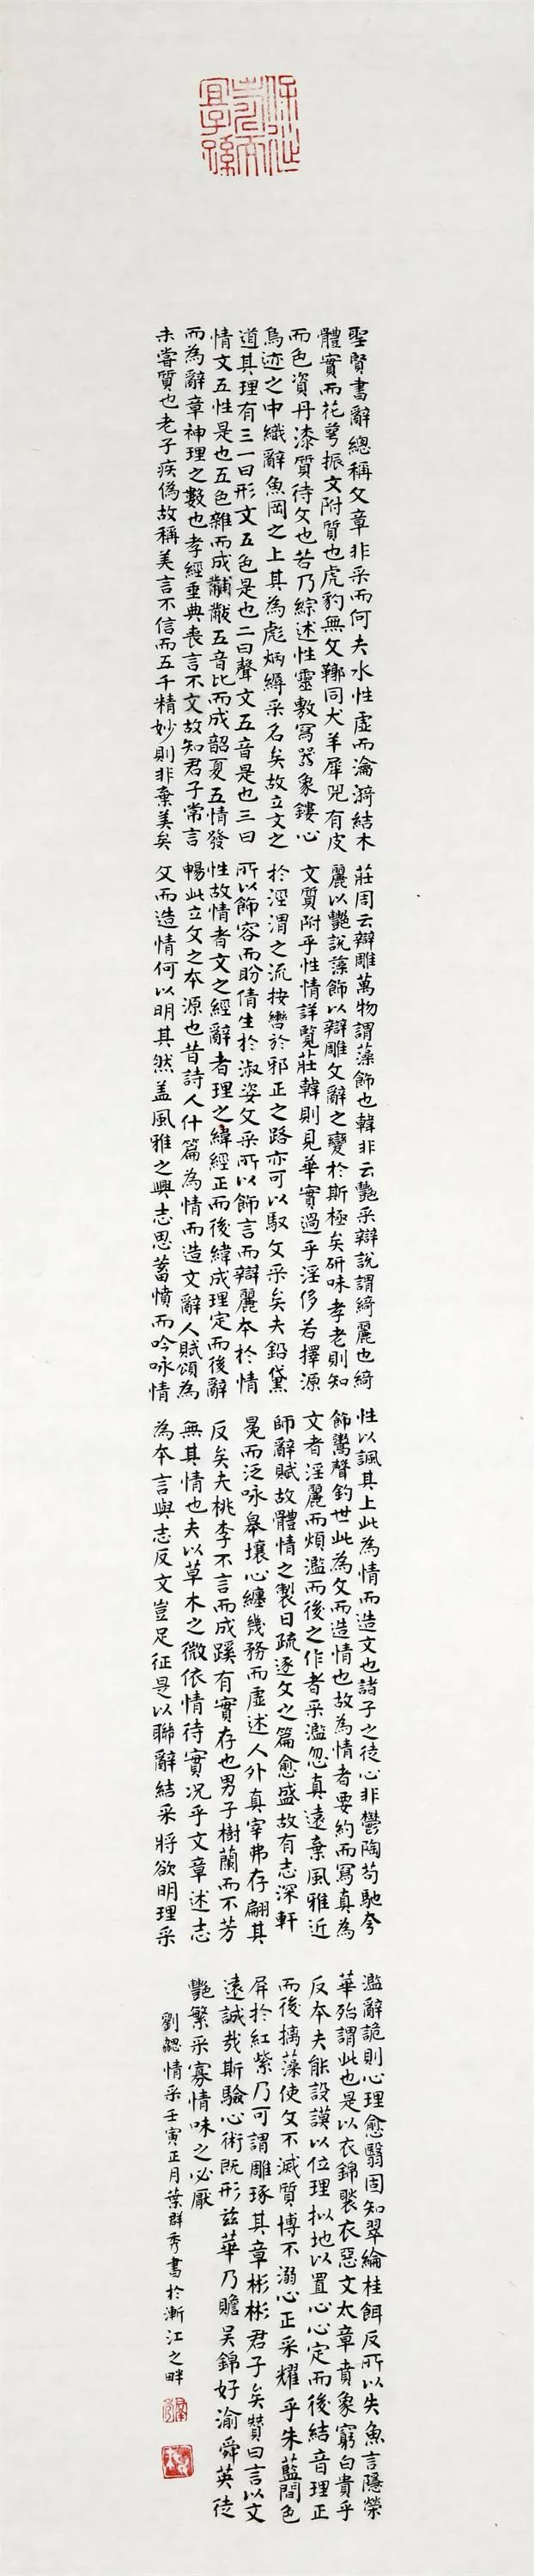 聖賢書辭總稱文章非采而何夫水性虛而淪漪結木
體實而花萼振文附質也虎豹無文鞹同犬羊犀兕有皮
而色資丹漆質待文也若乃綜述性靈敷寫器象鏤心
鳥迹之中織辭魚岡之上其為彪炳縟采名矣故立文之
道其理有三一曰形文五色是也二曰聲文五音是也三曰
情文五性是也五色雜而成黼黻五音比而成韶夏五情發
而為辭章神理之數也孝經垂典喪言不文故知君子常言
未嘗質也老子疾偽故稱美言不信而五千精妙則非棄美矣
莊周云辯雕萬物謂藻飾也韓非云艷采辯說謂綺麗也綺
麗以艷說藻飾以辯雕文辭之變於斯極矣研味孝老則知
文質附乎性情詳覽莊韓則見華實過乎淫侈若擇源
於涇渭之流按轡於邪正之路亦可以馭文采矣夫鉛黛
所以飾容而盼倩生於淑姿文采所以飾言而辯麗本於情
性故情者文之經辭者理之緯經正而後緯成理定而後辭
暢此立文之本源也昔詩人什篇為情而造文辭人賦頌為
文而造情何以明其然盖風雅之興志思蓄憤而吟咏情
性以諷其上此為情而造文也諸子之徒心非鬱陶苟馳夸
飾鬻聲釣世此為文而造情也故為情者要約而寫真為
文者淫麗而煩濫而後之作者采濫忽真遠棄風雅近
師辭賦故體情之製日疏逐文之篇愈盛故有志深軒
冕而泛咏皋壤心纏幾務而虛述人外真宰弗存翩其
反矣夫桃李不言而成蹊有實存也男子樹蘭而不芳
無其情也夫以草木之微依情待實况乎文章述志
為本言與志反文豈足征是以聯辭結采將欲明理采
濫辭詭則心理愈翳固知翠綸桂餌反所以失魚言隱榮
華殆謂此也是以衣錦褧衣惡文太章賁象窮白貴乎
反本夫能設謨以位理拟地以置心心定而後結音理正
而後摛藻使文不滅質博不溺心正采耀乎朱藍間色
屏於紅紫乃可謂雕琢其章彬彬君子矣贊曰言以文
遠誠哉斯驗心術既形兹華乃贍吴錦好渝舜英徒
艷繁采寡情味之必厭
劉勰情采壬寅正月葉群秀書於漸江之畔